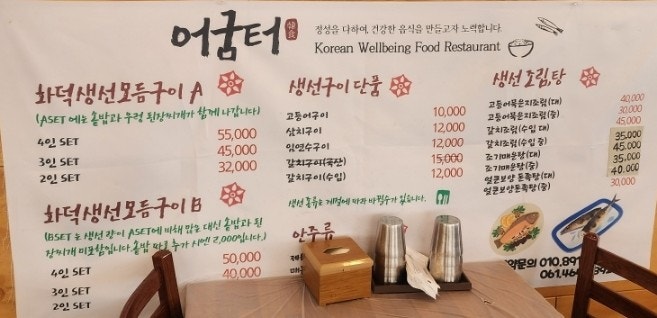 어굼터
韓食
정성을 다하여, 건강한 음식을 만들고자 노력합니다.
Korean Wellbeing Food Restaurant
화덕생선모듬구이 A
(ASET 에는 솥밥과 우렁 된장찌개가 함께 나갑니다)
4인 SET 55,000
3인 SET 45,000
2인 SET 32,000
화덕생선모듬구이 B
(BSET 는 생선 량이 ASET에 비해 많고 대신 솥밥과 된
장찌개 미포함입니다. 솥밥 추가 시엔 2,000입니다.)
4인 SET 50,000
3인 SET 40,000
2인 SET
생선구이 단품
고등어구이 10,000
삼치구이 12,000
임연수구이 12,000
갈치구이(국산) 15,000
갈치구이(수입) 12,000
생선 종류는 계절에 따라 바뀔수가 있습니다.
안주류
생선 조림,탕
고등어묵은지조림(대) 40,000
고등어묵은지조림(중) 30,000
갈치조림(수입 대) 45,000
갈치조림(수입 중) 35,000
조기매운탕(대) 45,000
조기매운탕(중) 35,000
얼큰보양 동죽탕(대) 40,000
얼큰보양 동죽탕(중) 30,000
약문의 010.891
061.46